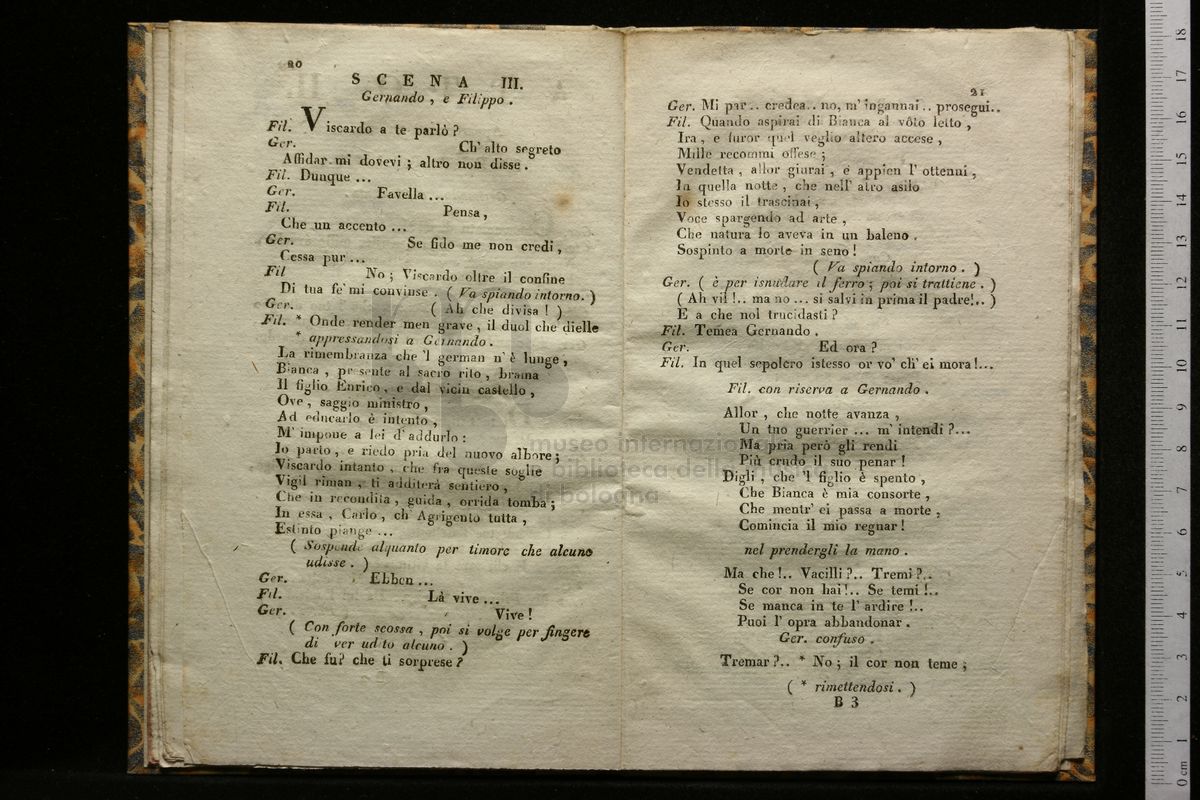 20
SCENA III.
Gernando, e Filippo.
Fil. Viscardo a te parlò?
Ger. Ch' alto segreto
Affidar mi dovevi; altro non disse.
Fil. Dunque ...
Ger. Favella ...
Fil. Pensa,
Che un accento ...
Ger. Se fido me non credi,
Cessa pur ...
Fil No; Viscardo oltre il confine
Di tua fe' mi convinse. (Va spiando intorno.)
Ger. (Ah che divisa!)
Fil. * Onde render men grave, il duol che dielle
* appressandosi a Gernando.
La rimembranza che 'l german n' è lunge,
Bianca, presente al sacro rito, brama
Il figlio Enrico, e dal vicin castello,
Ove, saggio ministro,
Ad educarlo è intento,
M' impone a lei d' addurlo:
Io parto, e riedo pria del nuovo albore;
Viscardo intanto, che fra queste soglie
Vigil riman, ti additerà sentiero,
Che in recondita, guida, orrida tomba;
In essa, Carlo, ch' Agrigento tutta,
Estinto piange ...
(Sospende alquanto per timore che alcuno
udisse.)
Ger. Ebben ...
Fil. Là vive ...
Ger. Vive!
(Con forte scossa, poi si volge per fingere
di ver udito alcuno.)
Fil. Che fu? che ti sorprese?
21
Ger. Mi par.. credea.. no, m' ingannai.. prosegui..
Fil. Quando aspirai di Bianca al vôto letto,
Ira, e furor quel veglio altero accese,
Mille recommi offese;
Vendetta, allor giurai, e appien l' ottenni,
In quella notte, che nell' atro asilo
Io stesso il trascinai,
Voce spargendo ad arte,
Che natura lo aveva in un baleno,
Sospinto a morte in seno!
(Va spiando intorno.)
Ger. (è per isnudare il ferro; poi si trattiene.)
(Ah vil!.. ma no ... si salvi in prima il padre!..)
E a che nol trucidasti?
Fil. Temea Gernando.
Ger. Ed ora?
Fil. In quel sepolcro istesso or vo' ch' ei mora!...
Fil. con riserva a Gernando.
Allor, che notte avanza,
Un tuo guerrier ... m' intendi?...
Ma pria però gli rendi
Più crudo il suo penar!
Digli, che 'l figlio è spento,
Che Bianca è mia consorte,
Che mentr' ei passa a morte,
Comincia il mio regnar!
nel prendergli la mano.
Ma che!.. Vacilli?.. Tremi?..
Se cor non hai!.. Se temi!..
Se manca in te l' ardire!..
Puoi l' opra abbandonar.
Ger. confuso.
Tremar?.. * No; il cor non teme;
(* rimettendosi.)
B 3
museo internazionale
biblioteca della musica
di bologna
0 cm 1 2 3 4 5 6 7 8 9 10 11 12 13 14 15 16 17 18